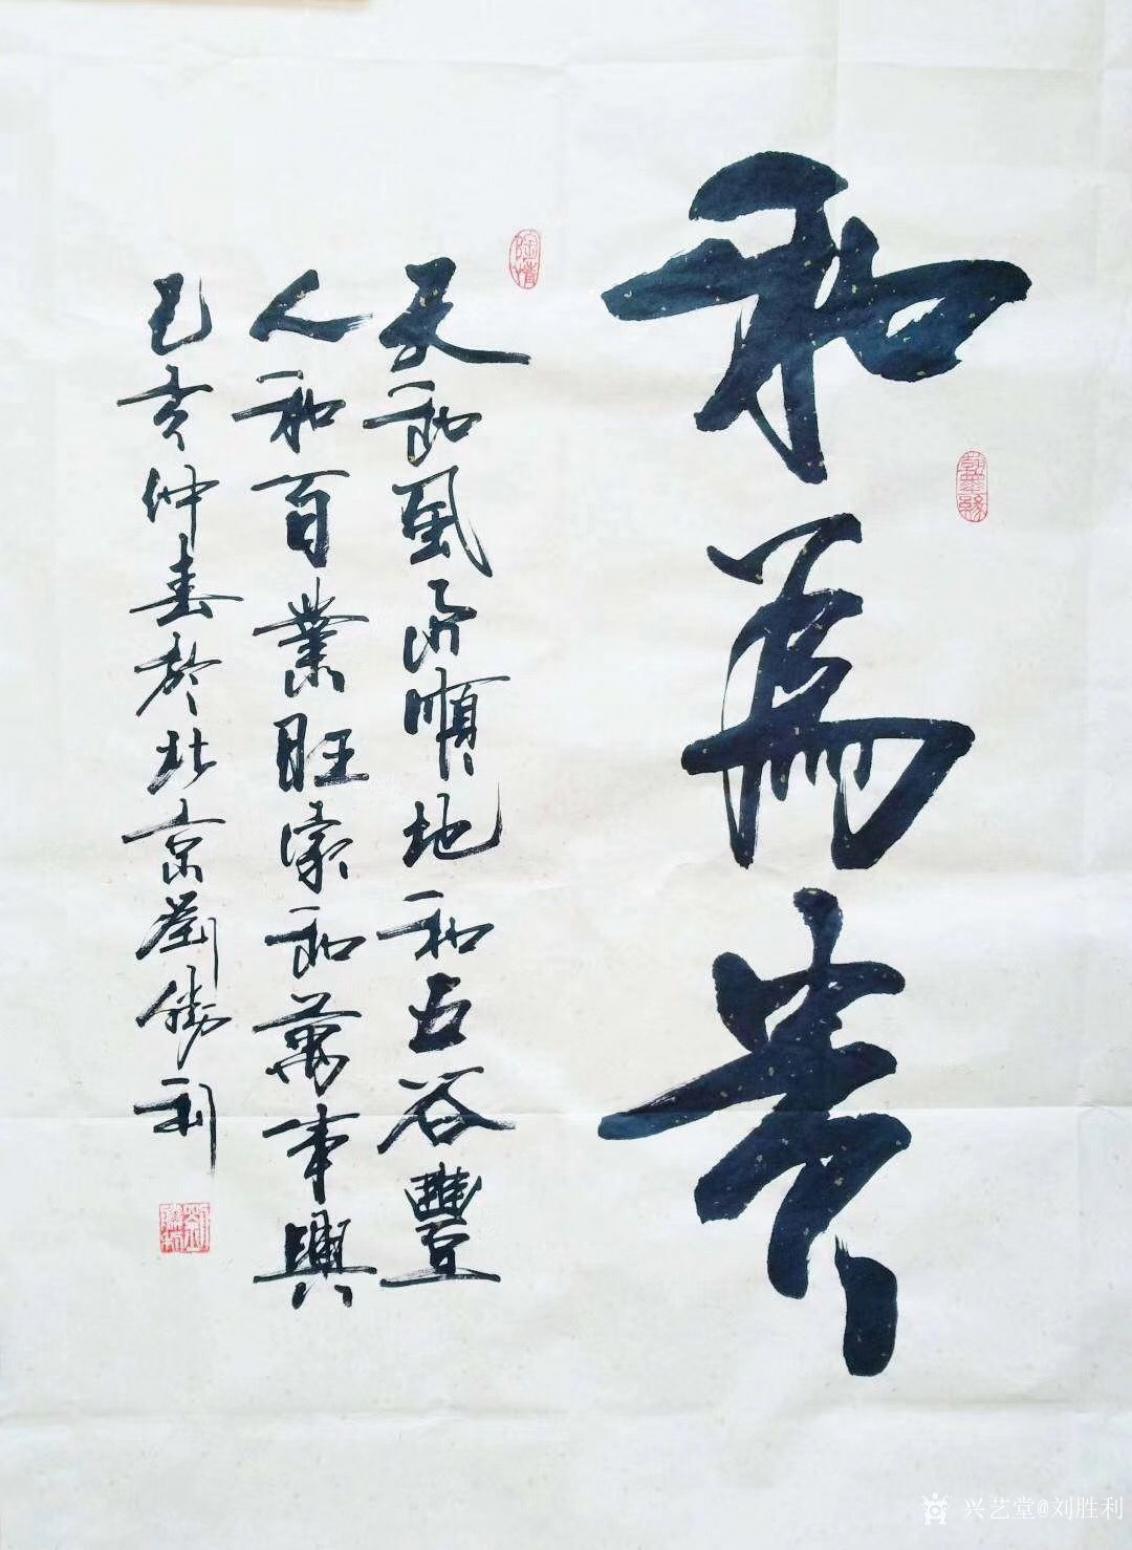 和為貴
天和風雨順地和五谷豐
人和百業旺家和萬事興
己亥仲春於北京劉勝利
陶情
兴艺堂@刘胜利